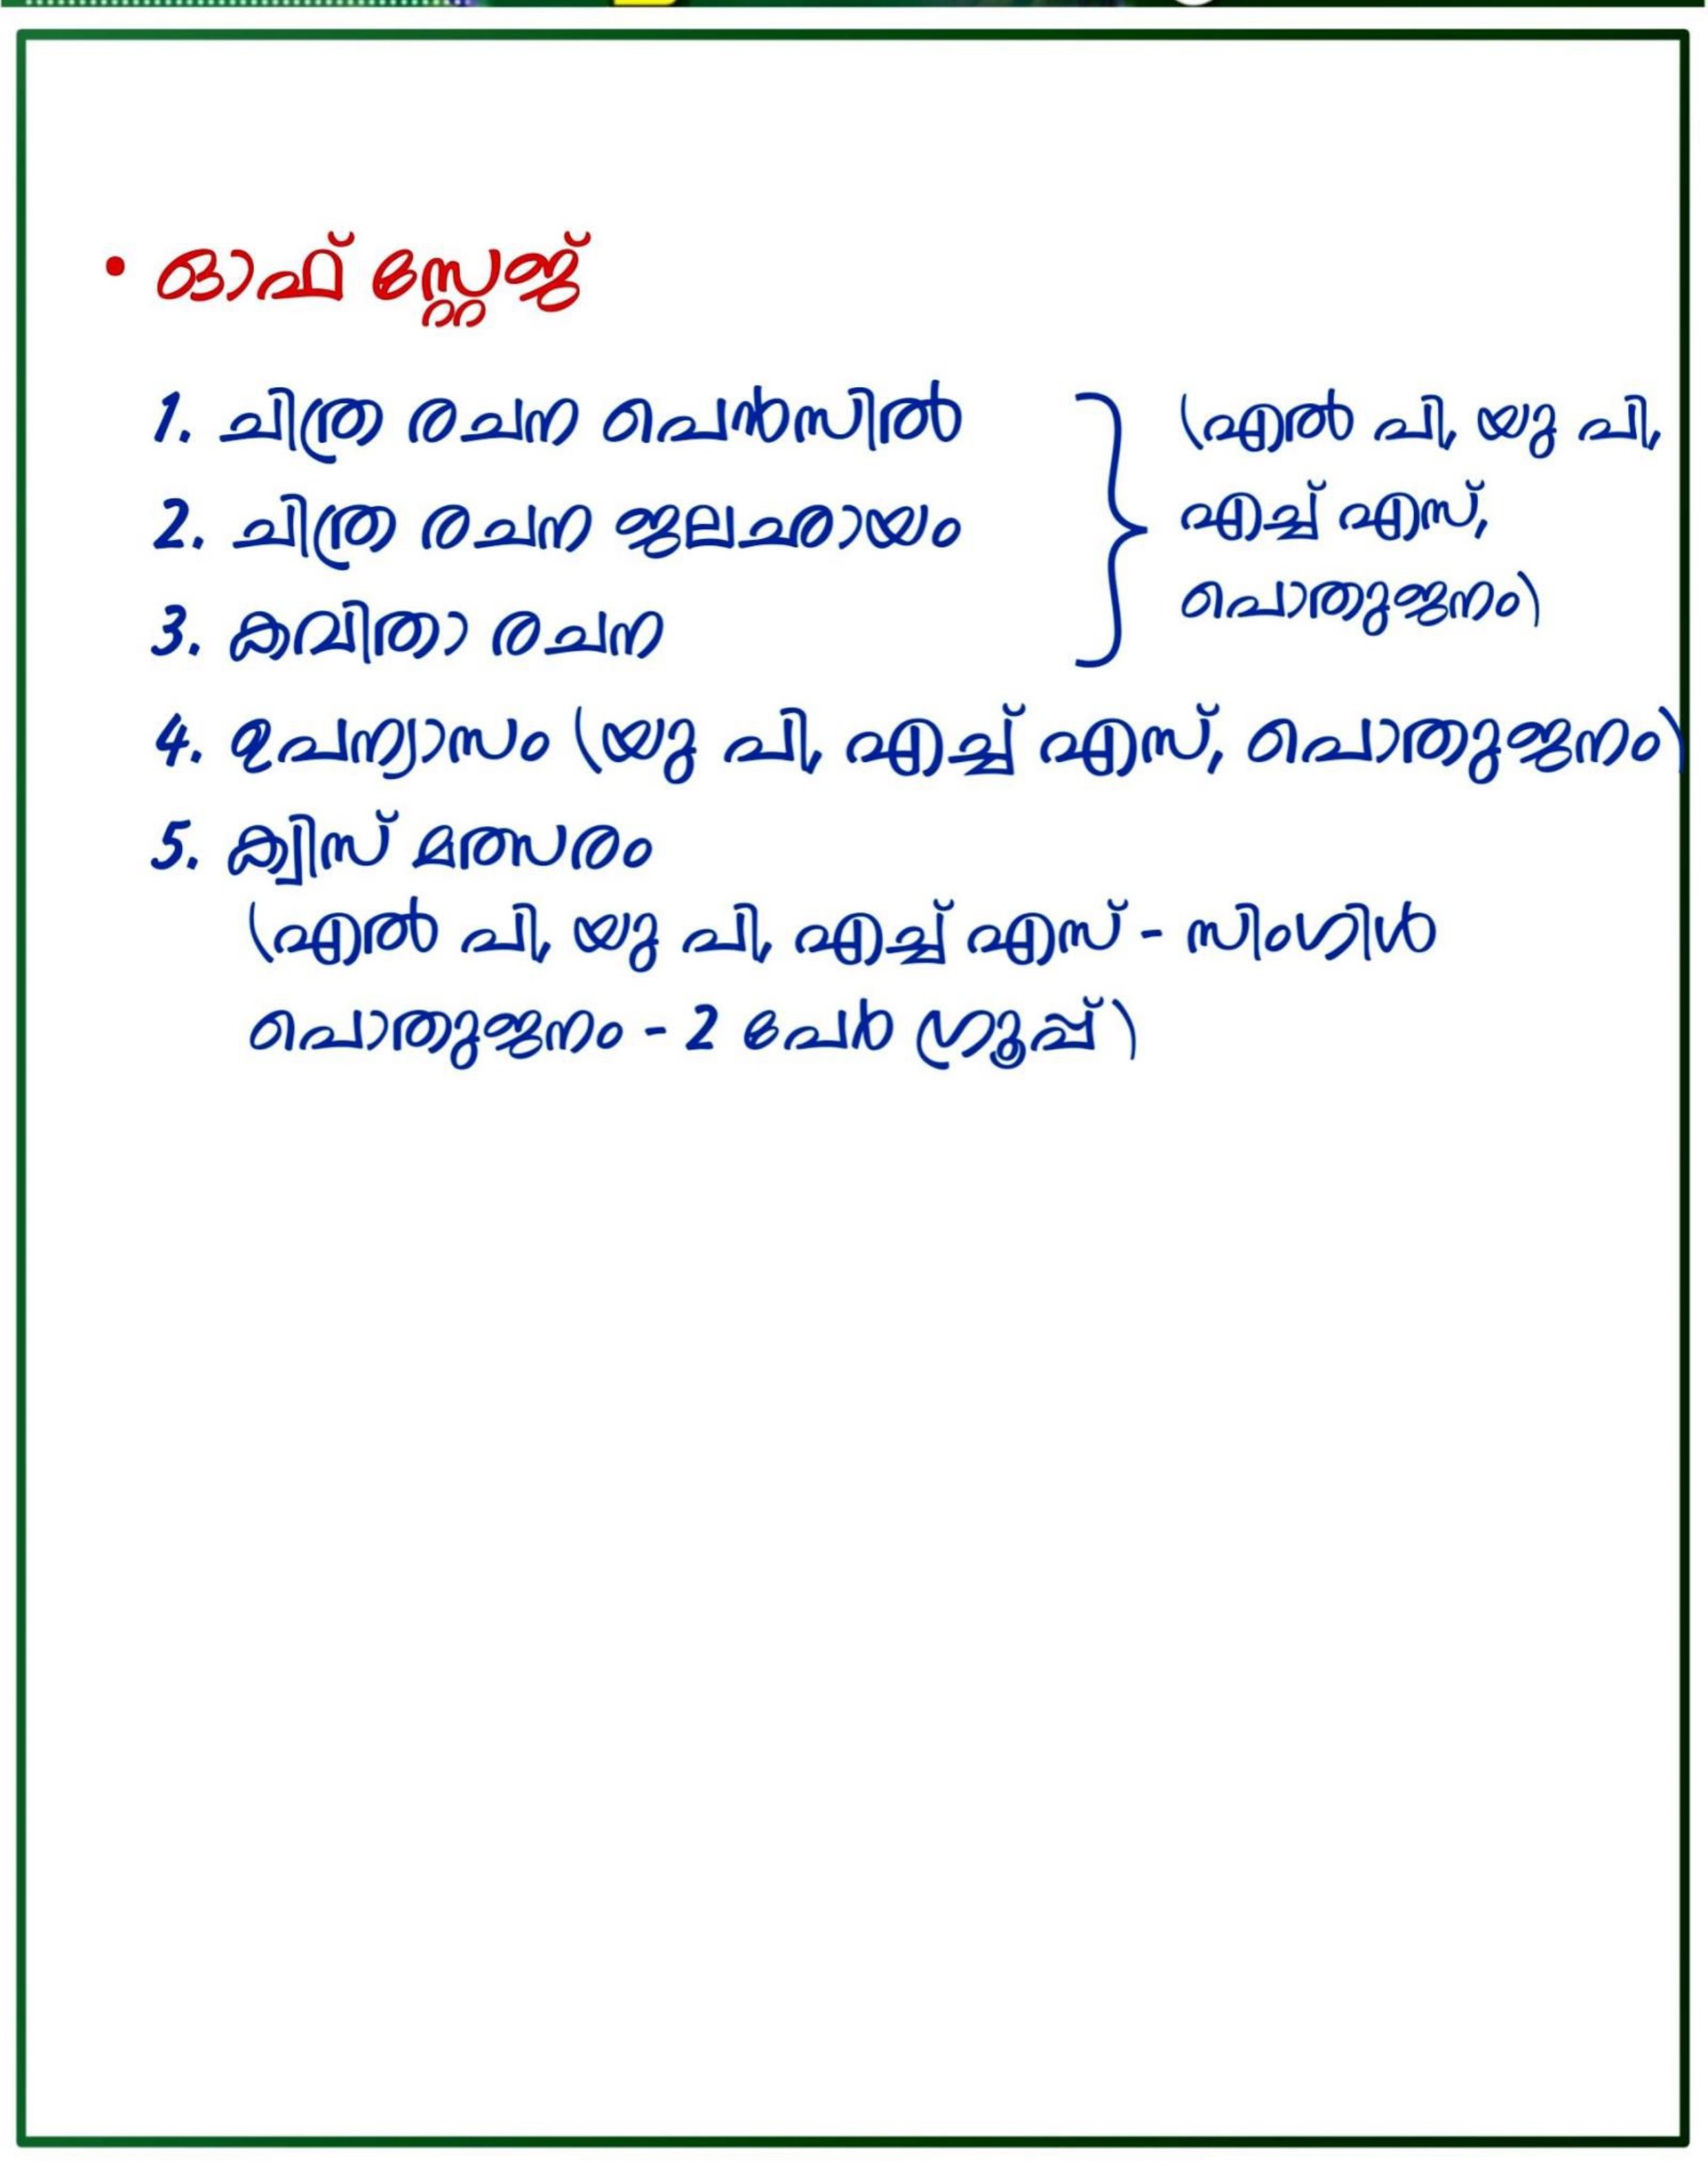 • ഓഫ് സ്റ്റേജ്
1. ചിത്ര രചന പെൻസിൽ
2. ചിത്ര രചന ജലഛായം
3. കവിതാ രചന
(എൽ പി, യു പി,
എച്ച് എസ്,
പൊതുജനം)
4. ഉപന്യാസം (യു പി, എച്ച് എസ്, പൊതുജനം)
5. ക്വിസ് മത്സരം
(എൽ പി, യു പി, എച്ച് എസ് - സിംഗിൾ
പൊതുജനം - 2 പേർ ഗ്രൂപ്പ്)